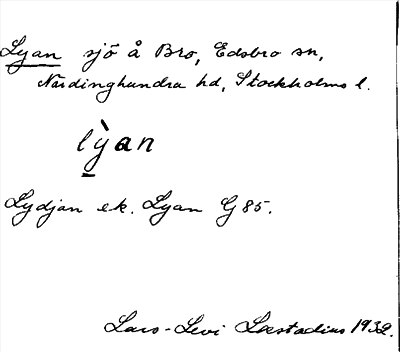 Lyan sjö å Bro, Edsbro sn,
Närdinghundra hd, Stockholms l.
lỳan
Lydjan ek. Lyan G 85.
Lars-Levi Læstadius 1932.